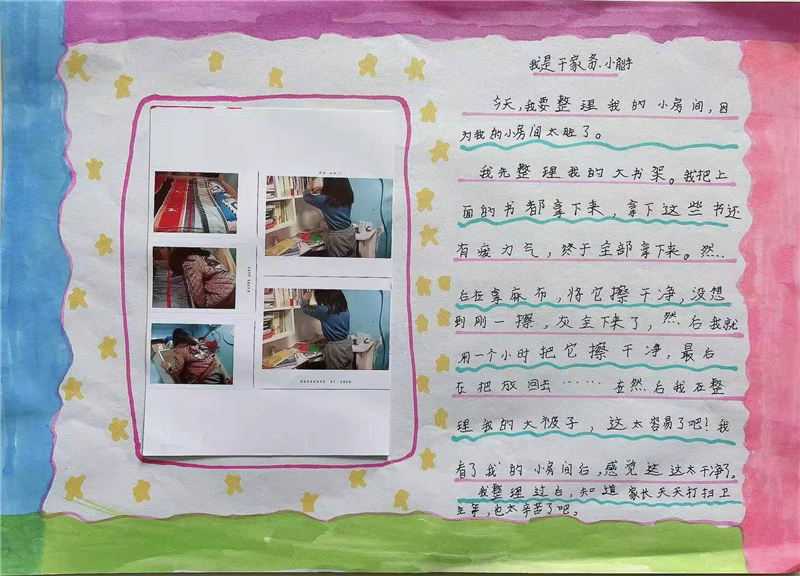 我是干家务小能手
今天,我要整理我的小房间,因
为我的小房间太脏了。
我先整理我的大书架。我把上
面的书都拿下来,拿下这些书还
有疲力气,终于全部拿下来。然…
后在拿麻布,将它擦干净,没想
到刚一擦,灰全下来了,然后我就
用一个小时把它擦干净,最后
在把放回去……在然后我在整
理我的大被子,这太容易了吧!我
看了我的小房间后,感觉这这太干净了。
我整理过后,知道家长天天打扫卫
生,也太辛苦了吧。